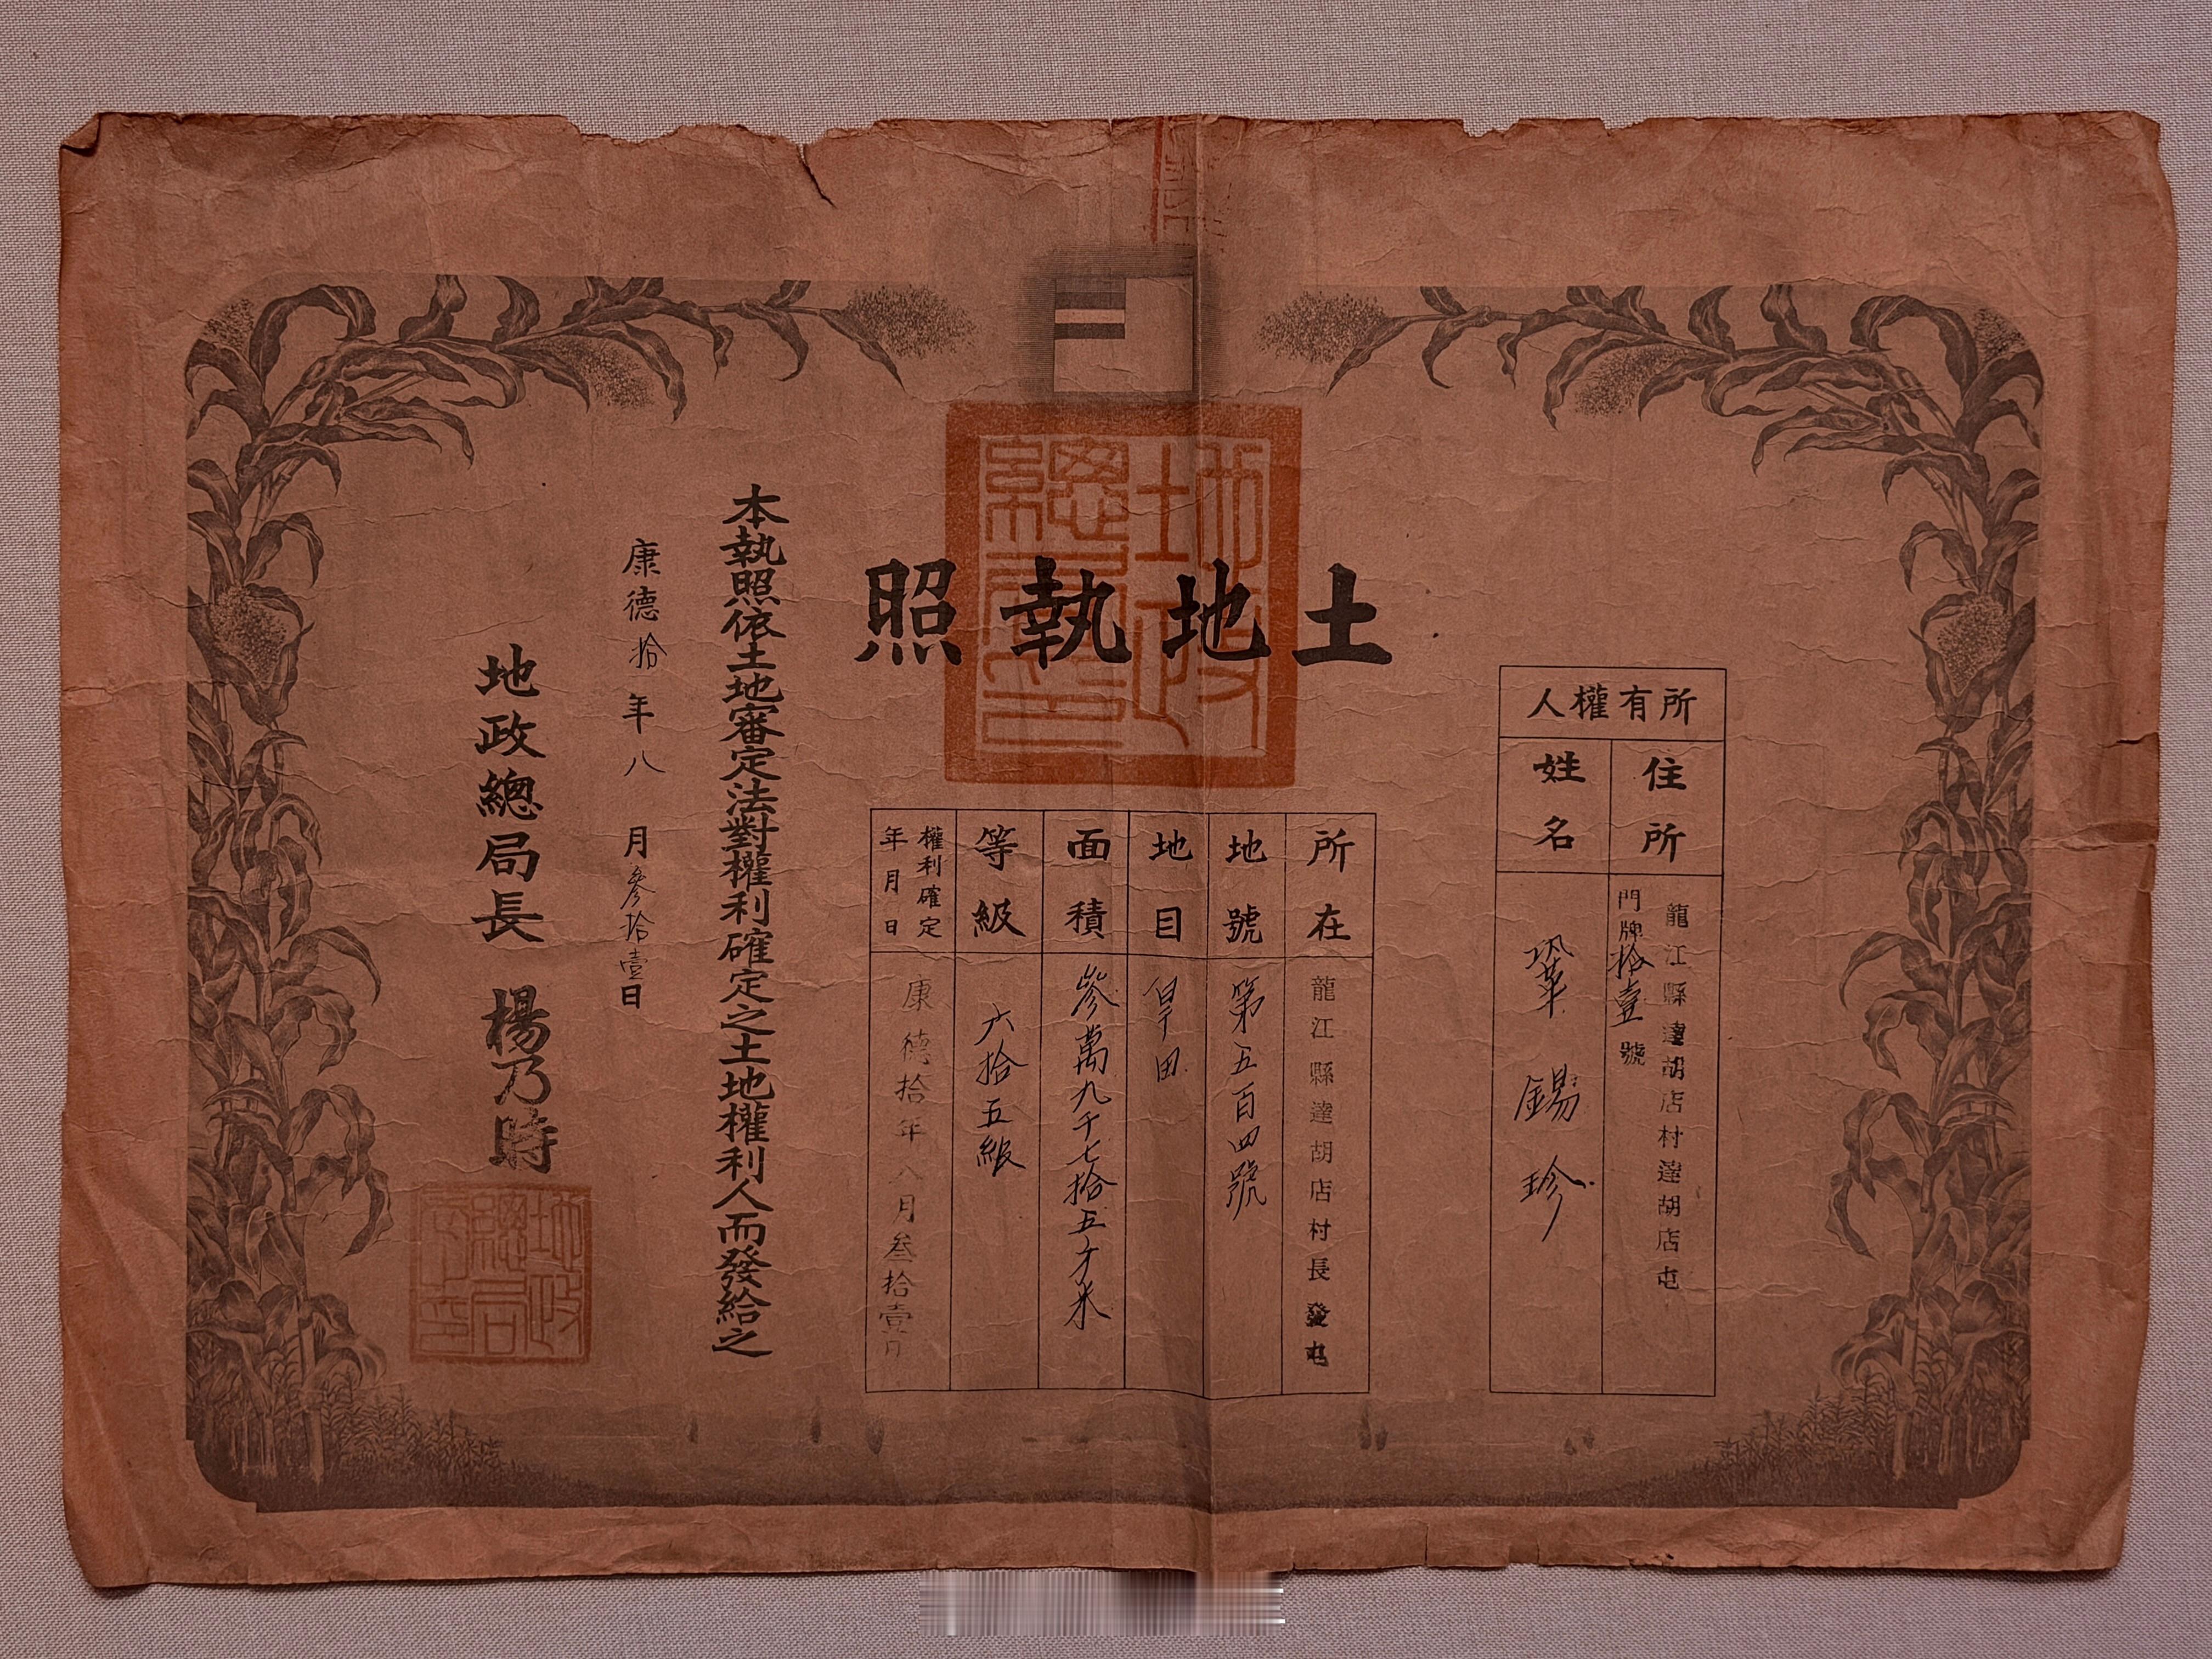 土地執照
所有權人
住所
龍江縣達胡店村達胡店屯
門牌拾壹號
姓名
鞏錫珍
所在
龍江縣達胡店村長發屯
地號
第五百四號
地目
旱田
面積
參萬九千七拾五平米
等級
六拾五級
權利確定
年月日
康德拾年八月叁拾壹日
本執照依土地審定法對權利確定之土地權利人而發給之
康德拾年八月叁拾壹日
地政總局長 楊乃時
地政總局之印